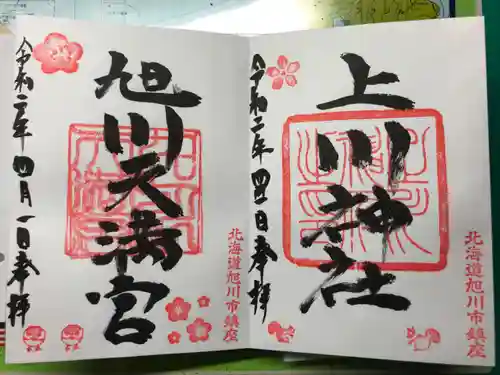 上川神社
令和二年四月一日奉拝
北海道旭川市鎮座
旭川天満宮
令和二年四月一日奉拝
北海道旭川市鎮座